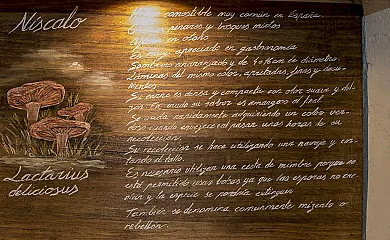 Níscalo
Lactarius
deliciosus
comestible muy común en España.
pinares y bosques mixtos
en otoño
Es muy apreciado en gastronomía
Sombrero anaranjado y de 4-16 cm de diámetro.
Láminas del mismo color, apretadas, finas y decu-
rrentes.
Su carne es densa y compacta con olor suave y dul-
ce. En crudo su sabor es amargo al final.
Se oxida rapidamente adquiriendo un color ver-
doso cuando envejece o al pasar unas horas de su
recolección.
Su recolección se hace utilizando una navaja y cor-
tando el tallo.
Es necesario utilizar una cesta de mimbre porque no
está permitido usar bolsas ya que las esporas no cae-
rían y la especie se podría extinguir.
También se denomina comunmente mízcalo o
rebellón.